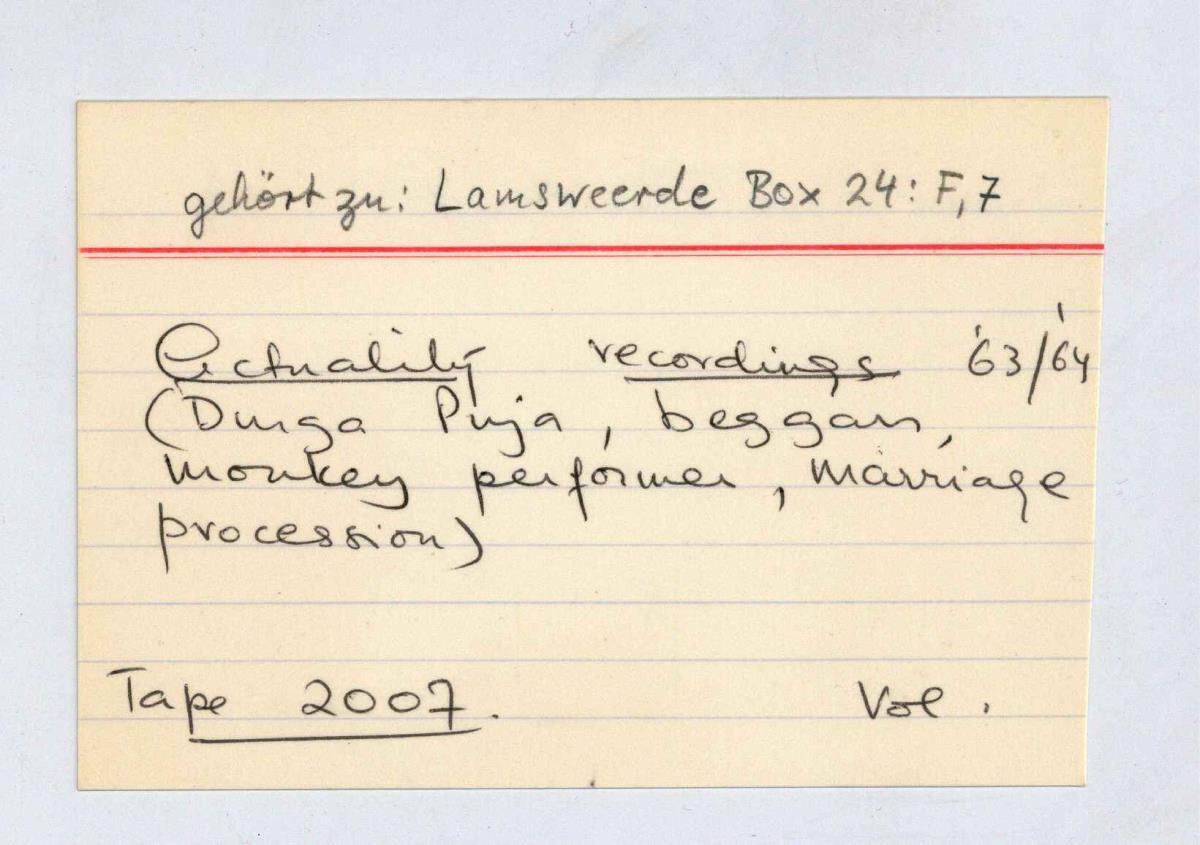 gehört zu: Lamsweerde Box 24: F,7
Actuality recordings '63/'64
(Durga Puja, beggars,
monkey performer, marriage
procession)
Tape 2007. Vol.